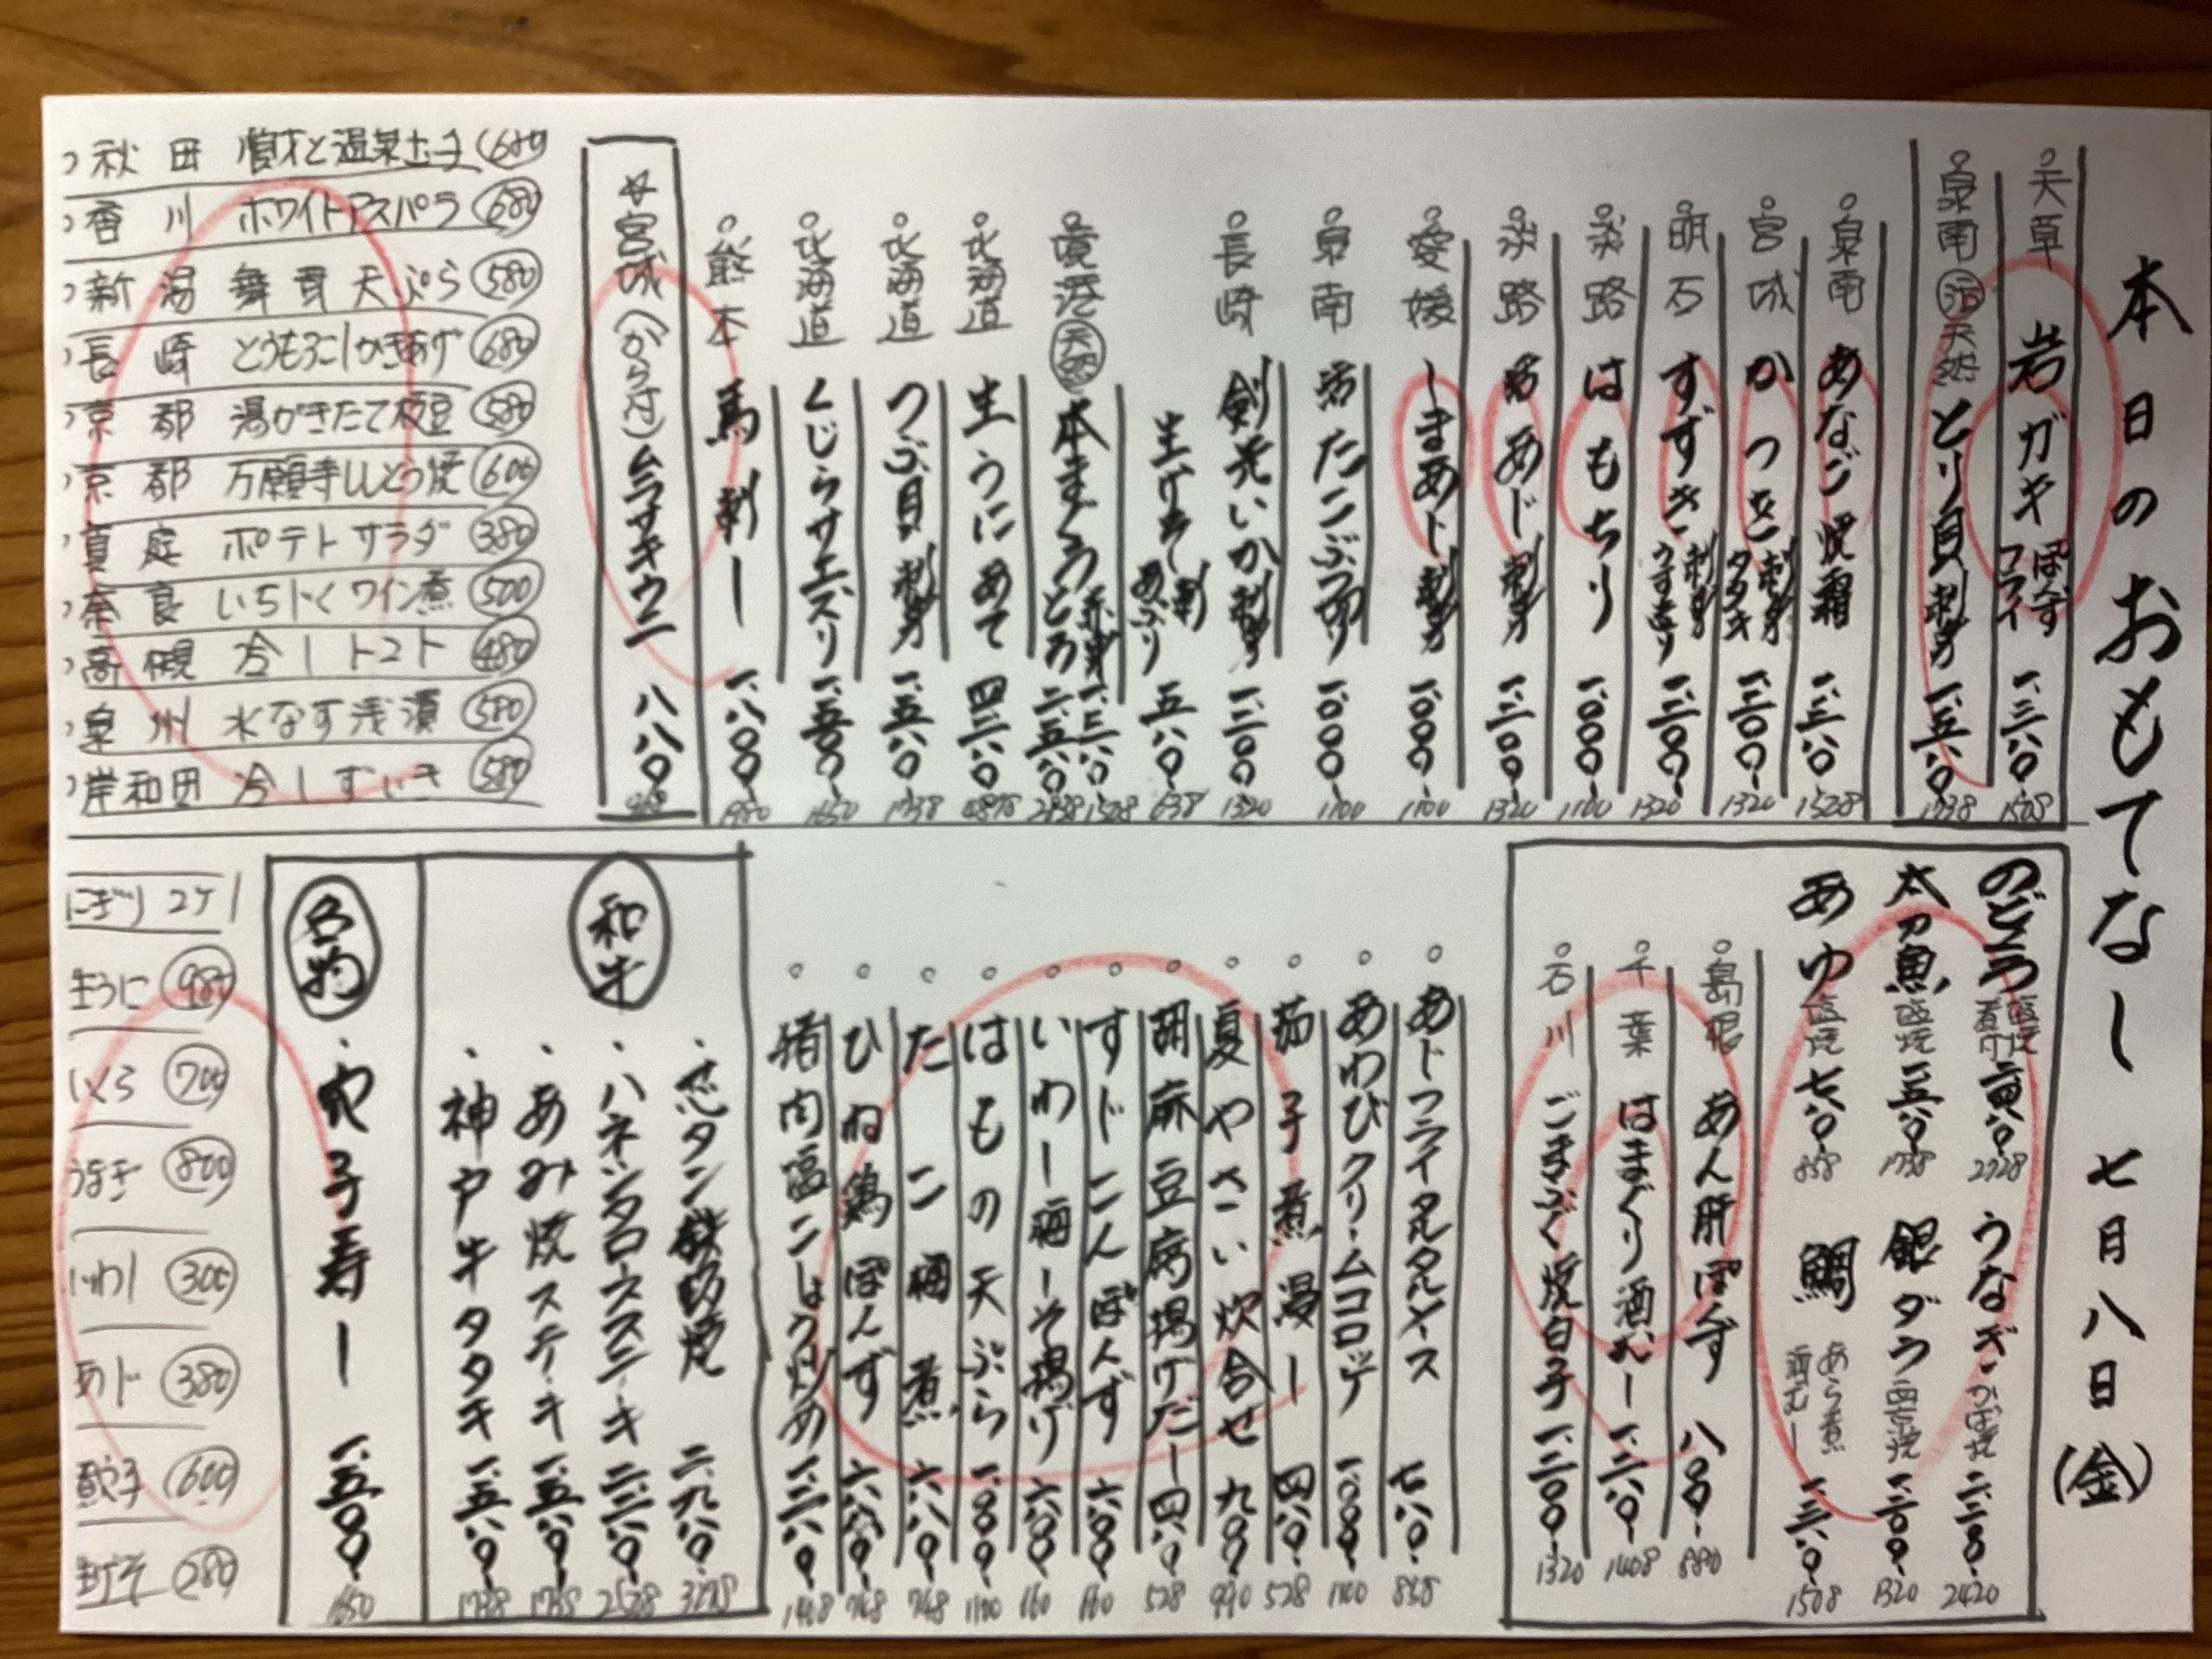 本日のおもてなし 七月八日(金)
天草 岩ガキ ぽんず フライ 一、三八〇 1508
泉南 活 天然 とり貝 刺身 一、五八〇 1738
泉南 あなご 焼霜 一、三八〇 1528
宮城 かつを 刺身 タタキ 一、二〇〇 1320
明石 すずき 刺身 うす造り 一、二〇〇 1320
淡路 はもちり 一、〇〇〇 1100
淡路 活あじ 刺身 一、二〇〇 1320
愛媛 しまあじ 刺身 一、〇〇〇 1100
泉南 活たこぶつ切り 一、〇〇〇 1100
長崎 剣先いか 刺身 一、二〇〇 1320
生げそ 刺 あぶり 五八〇 638
境港 天然 本まぐろ 赤身 一、三八〇 1528 とろ 二、五八〇
北海道 生うにあて 四、二八〇
北海道 つぶ貝 刺身 一、五八〇 1738
北海道 くじらサエズリ 一、五〇〇 1650
熊本 馬刺し 一、八〇〇 1980
☆宮城(から付)ムラサキウニ 八八〇 968
秋田 温泉玉子 680
香川 ホワイトアスパラ 680
新潟 舞茸天ぷら 580
長崎 とうもろこしかきあげ 680
京都 湯がきたて枝豆 580
京都 万願寺ししとう焼 600
真庭 ポテトサラダ 380
奈良 いちじくワイン煮 500
高槻 冷しトマト 480
泉州 水なす浅漬 580
岸和田 冷しずいき 580
のどぐろ 塩焼 煮付 2728
太刀魚 塩焼 一、五八〇 1738
あゆ 塩焼 七八〇 858
うなぎ かば焼 二、二〇〇 2420
銀ダラ 西京焼 一、二〇〇 1320
鯛 あら煮 酒むし 一、三八〇 1508
島根 あん肝ぽんず 八〇〇 880
千葉 はまぐり酒むし 一、二八〇 1408
石川 ごまふぐ焼白子 一、二〇〇 1320
あじフライタルタルソース 七八〇 858
あわびクリームコロッケ 一、〇〇〇 1100
茄子煮浸し 四八〇 528
夏やさい炊合せ 九〇〇 990
胡麻豆腐揚げだし 四八〇 528
すじこんぽんず 六〇〇
いわし梅しそ揚げ 六〇〇
はもの天ぷら 一、〇〇〇 1100
たこ梱煮 六八〇 748
ひね鶏ぽんず 六八〇 748
猪肉塩こしょう炒め 一、二八〇
和牛
芯タン鉄板焼 二、九八〇 3278
・ハネシタロースステーキ 二、三〇〇
・あみ焼ステーキ 一、五八〇 1738
・神戸牛タタキ 一、五八〇 1738
名物
・穴子寿し 一、五〇〇 1650
にぎり 2ケ
生うに 980
いくら 700
うなぎ 800
いわし 300
あじ 380
穴子 600
生げそ 280